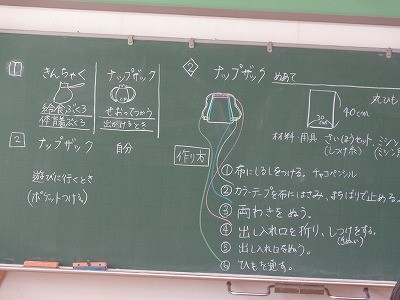 1
きんちゃく
給食ぶくろ
体育着ぶくろ
ナップザック
せおってつかう
出かけるとき
2 ナップザック 自分
遊びに行くとき
(ポケットつける)
② ナップザック ぬあて
丸ひも
40cm
30cm
材料・用具 さいほうセット、ミシン
(しつけ糸) (ミシン
作り方
① 布にしるしをつける。チャコペンシル
② カラーテープを布にはさみ、まちばりで止める。
③ 両わきをぬう。
④ 出し入れ口を折り、しつけをする。
⑤ 出し入れ口をぬう。
⑥ ひもを通す。